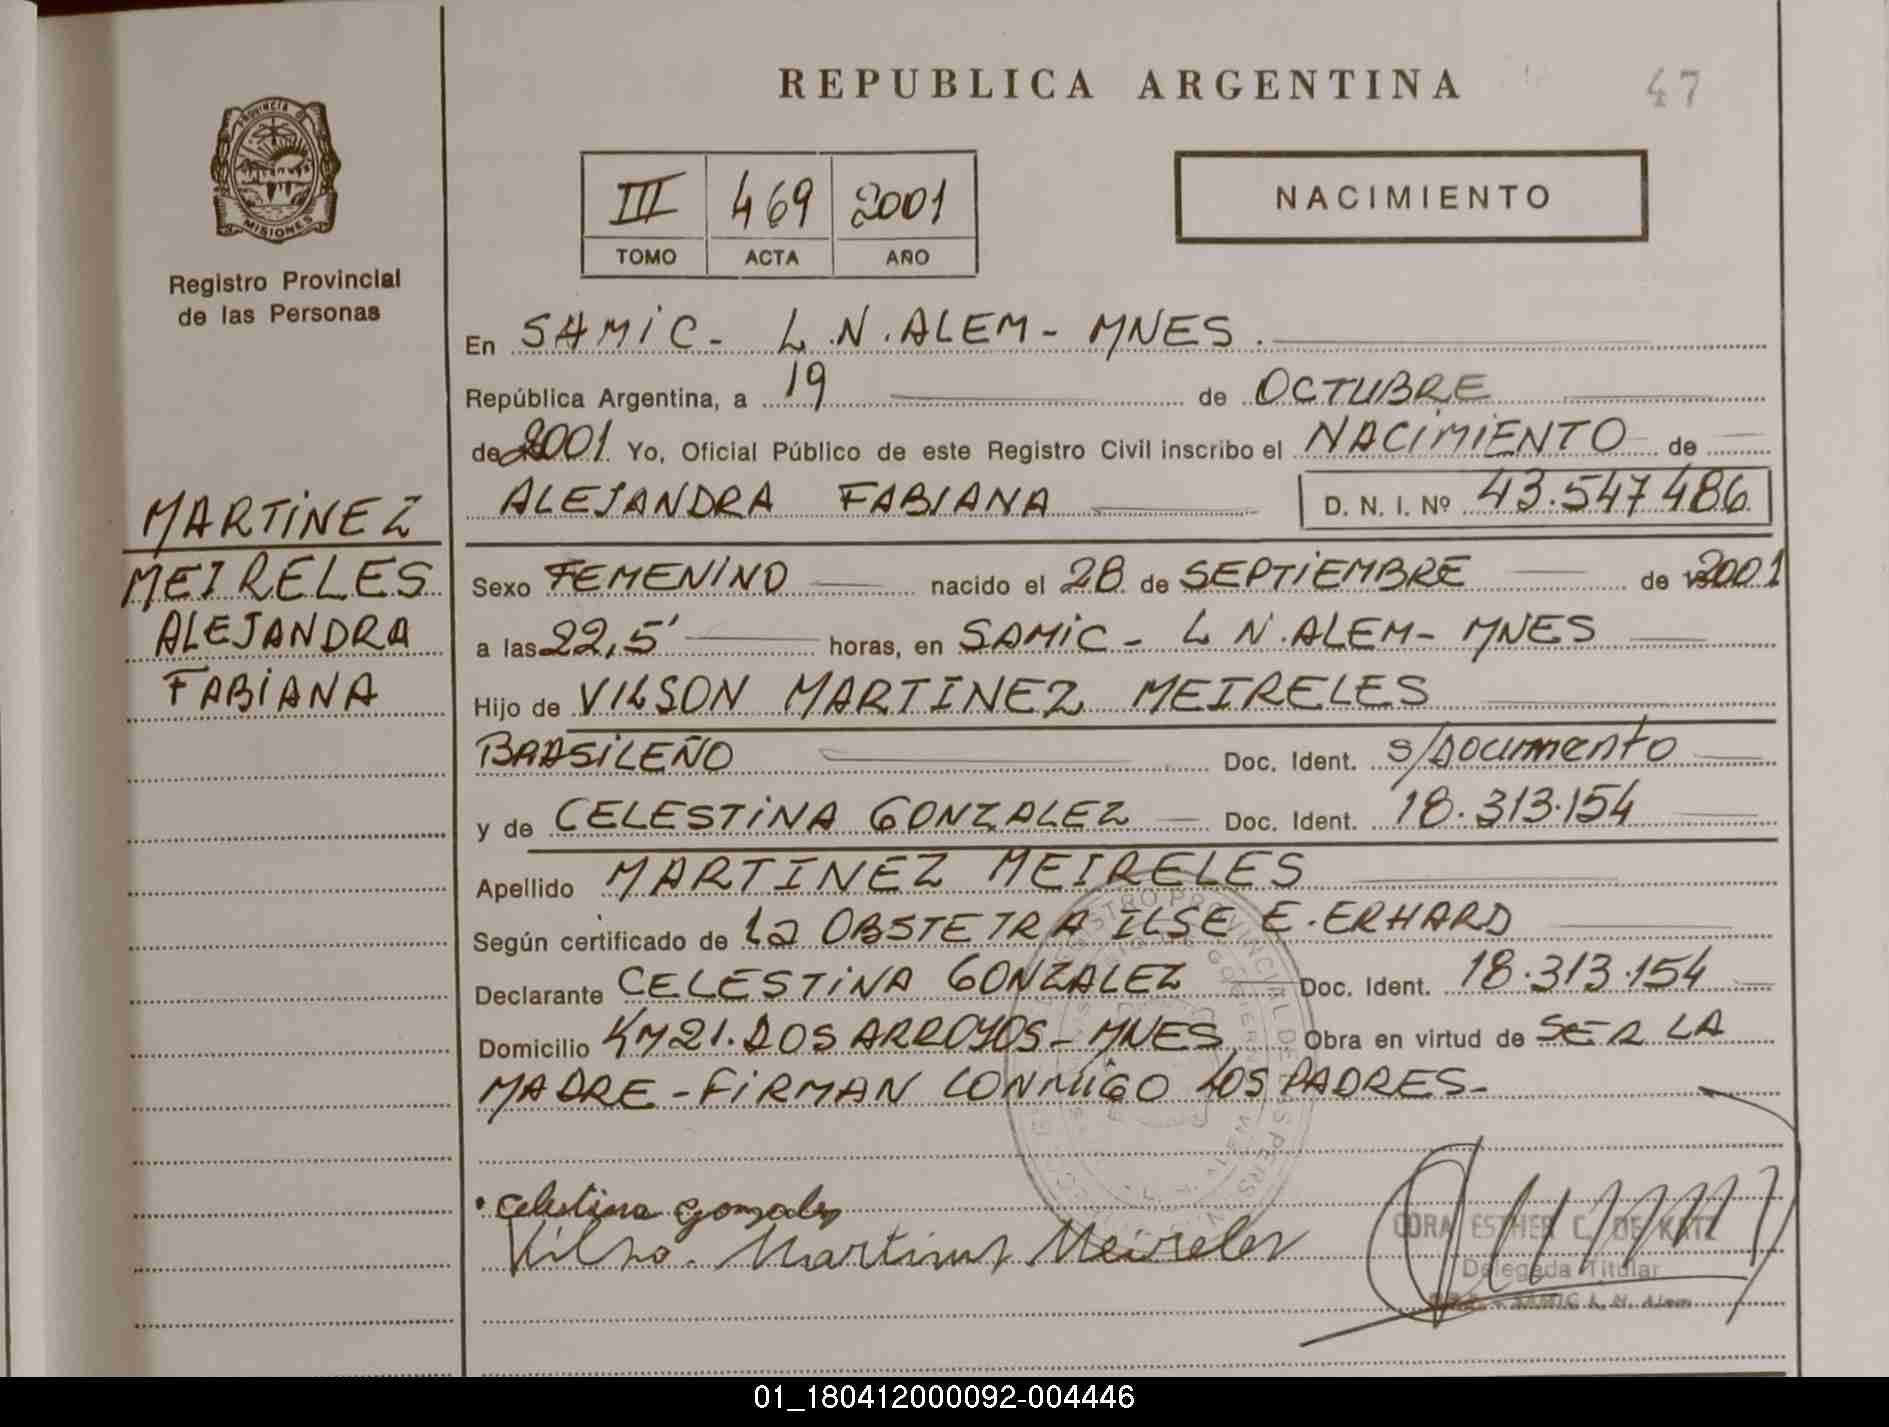 REPUBLICA ARGENTINA
47
PROVINCIA DE
MISIONES
Registro Provincial
de las Personas
III 469 2001
TOMO ACTA AÑO
NACIMIENTO
En SAMIC - L.N. ALEM - MNES.
República Argentina, a 19 de OCTUBRE
de 2001 Yo, Oficial Público de este Registro Civil inscribo el NACIMIENTO de
ALEJANDRA FABIANA D. N. I. Nº 43.547.486
MARTINEZ
MEIRELES
ALEJANDRA
FABIANA
Sexo FEMENINO nacido el 28 de SEPTIEMBRE de 2001
a las 22,5' horas, en SAMIC - L N. ALEM - MNES
Hijo de VILSON MARTINEZ MEIRELES
BRASILEÑO Doc. Ident. s/Documento
y de CELESTINA GONZALEZ Doc. Ident. 18.313.154
Apellido MARTINEZ MEIRELES
Según certificado de La OBSTETRA ILSE E. ERHARD
Declarante CELESTINA GONZALEZ Doc. Ident. 18.313.154
Domicilio KM 21. DOS ARROYOS - MNES Obra en virtud de SER LA
MADRE - FIRMAN CONMIGO LOS PADRES -
Celestina Gonzalez
Vilso. Martines Meireles
CORA ESTHER C. DE KATZ
Delegada Titular
SAMIC L. N. Alem
01_180412000092-004446